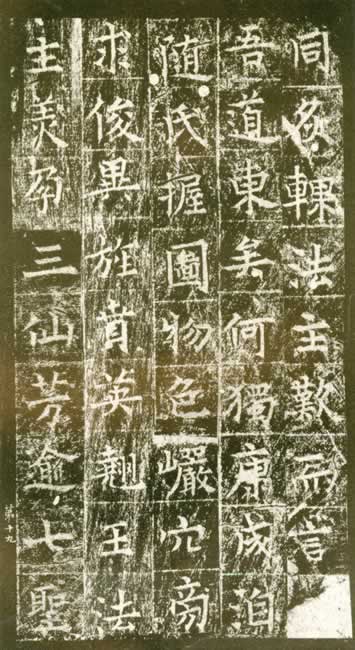 同炙輠法主歎而言
吾道東矣何獨康成洎
随氏握圖物色巗穴旁
求俊異旌賁英翹王法
主美孕三仙芳逾七聖
第十九